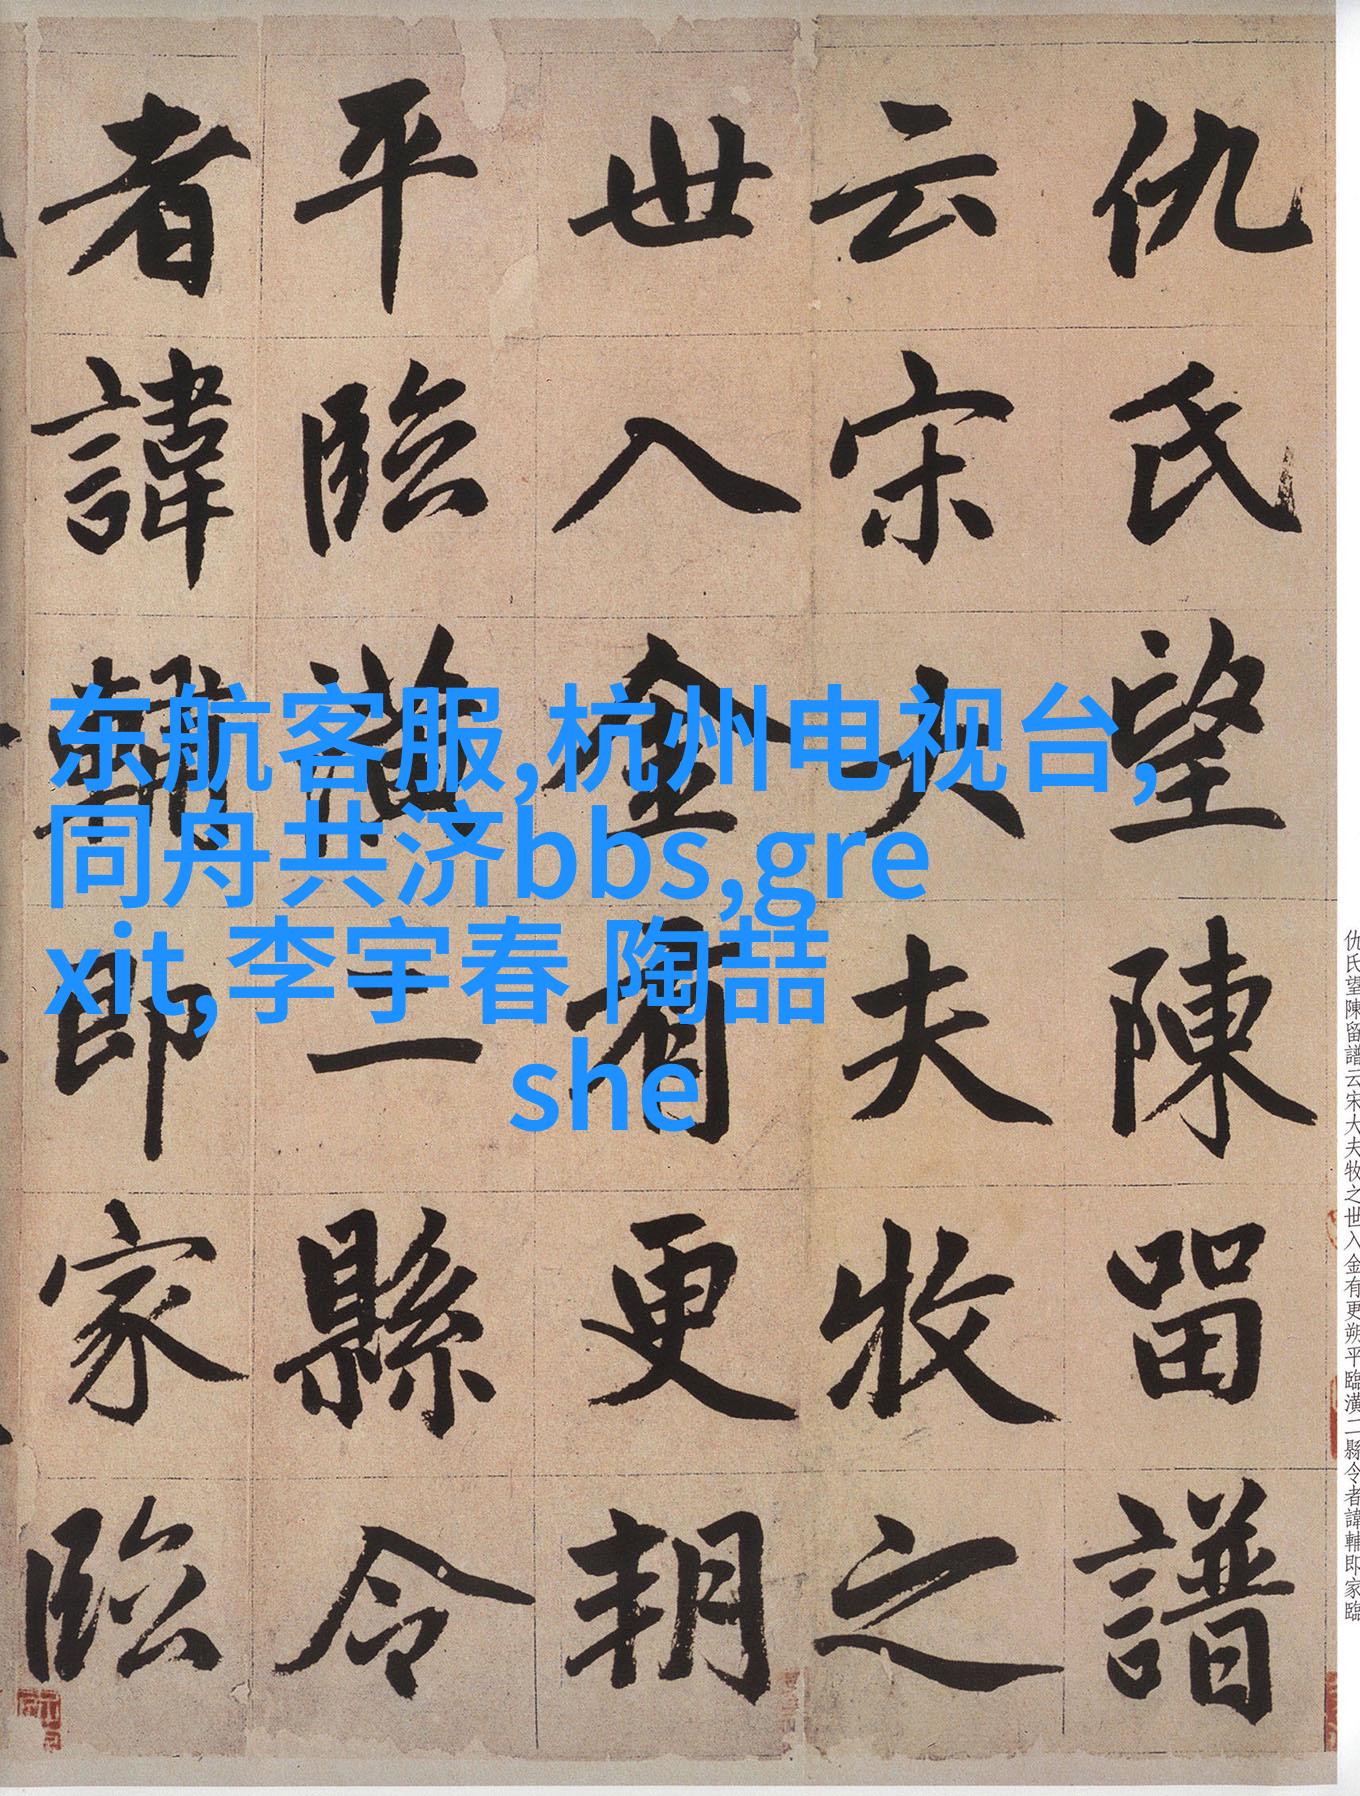 仇氏望陳留譜
云宋大夫牧之
世入金有更朔
平臨潢二縣令
者諱輔即家臨
东航客服,杭州电视台,
同舟共济bbs,gre
xit,李宇春 陶喆
she
仇氏望陳留譜云宋大夫牧之世入金有更朔平臨潢二縣令者諱輔即家臨